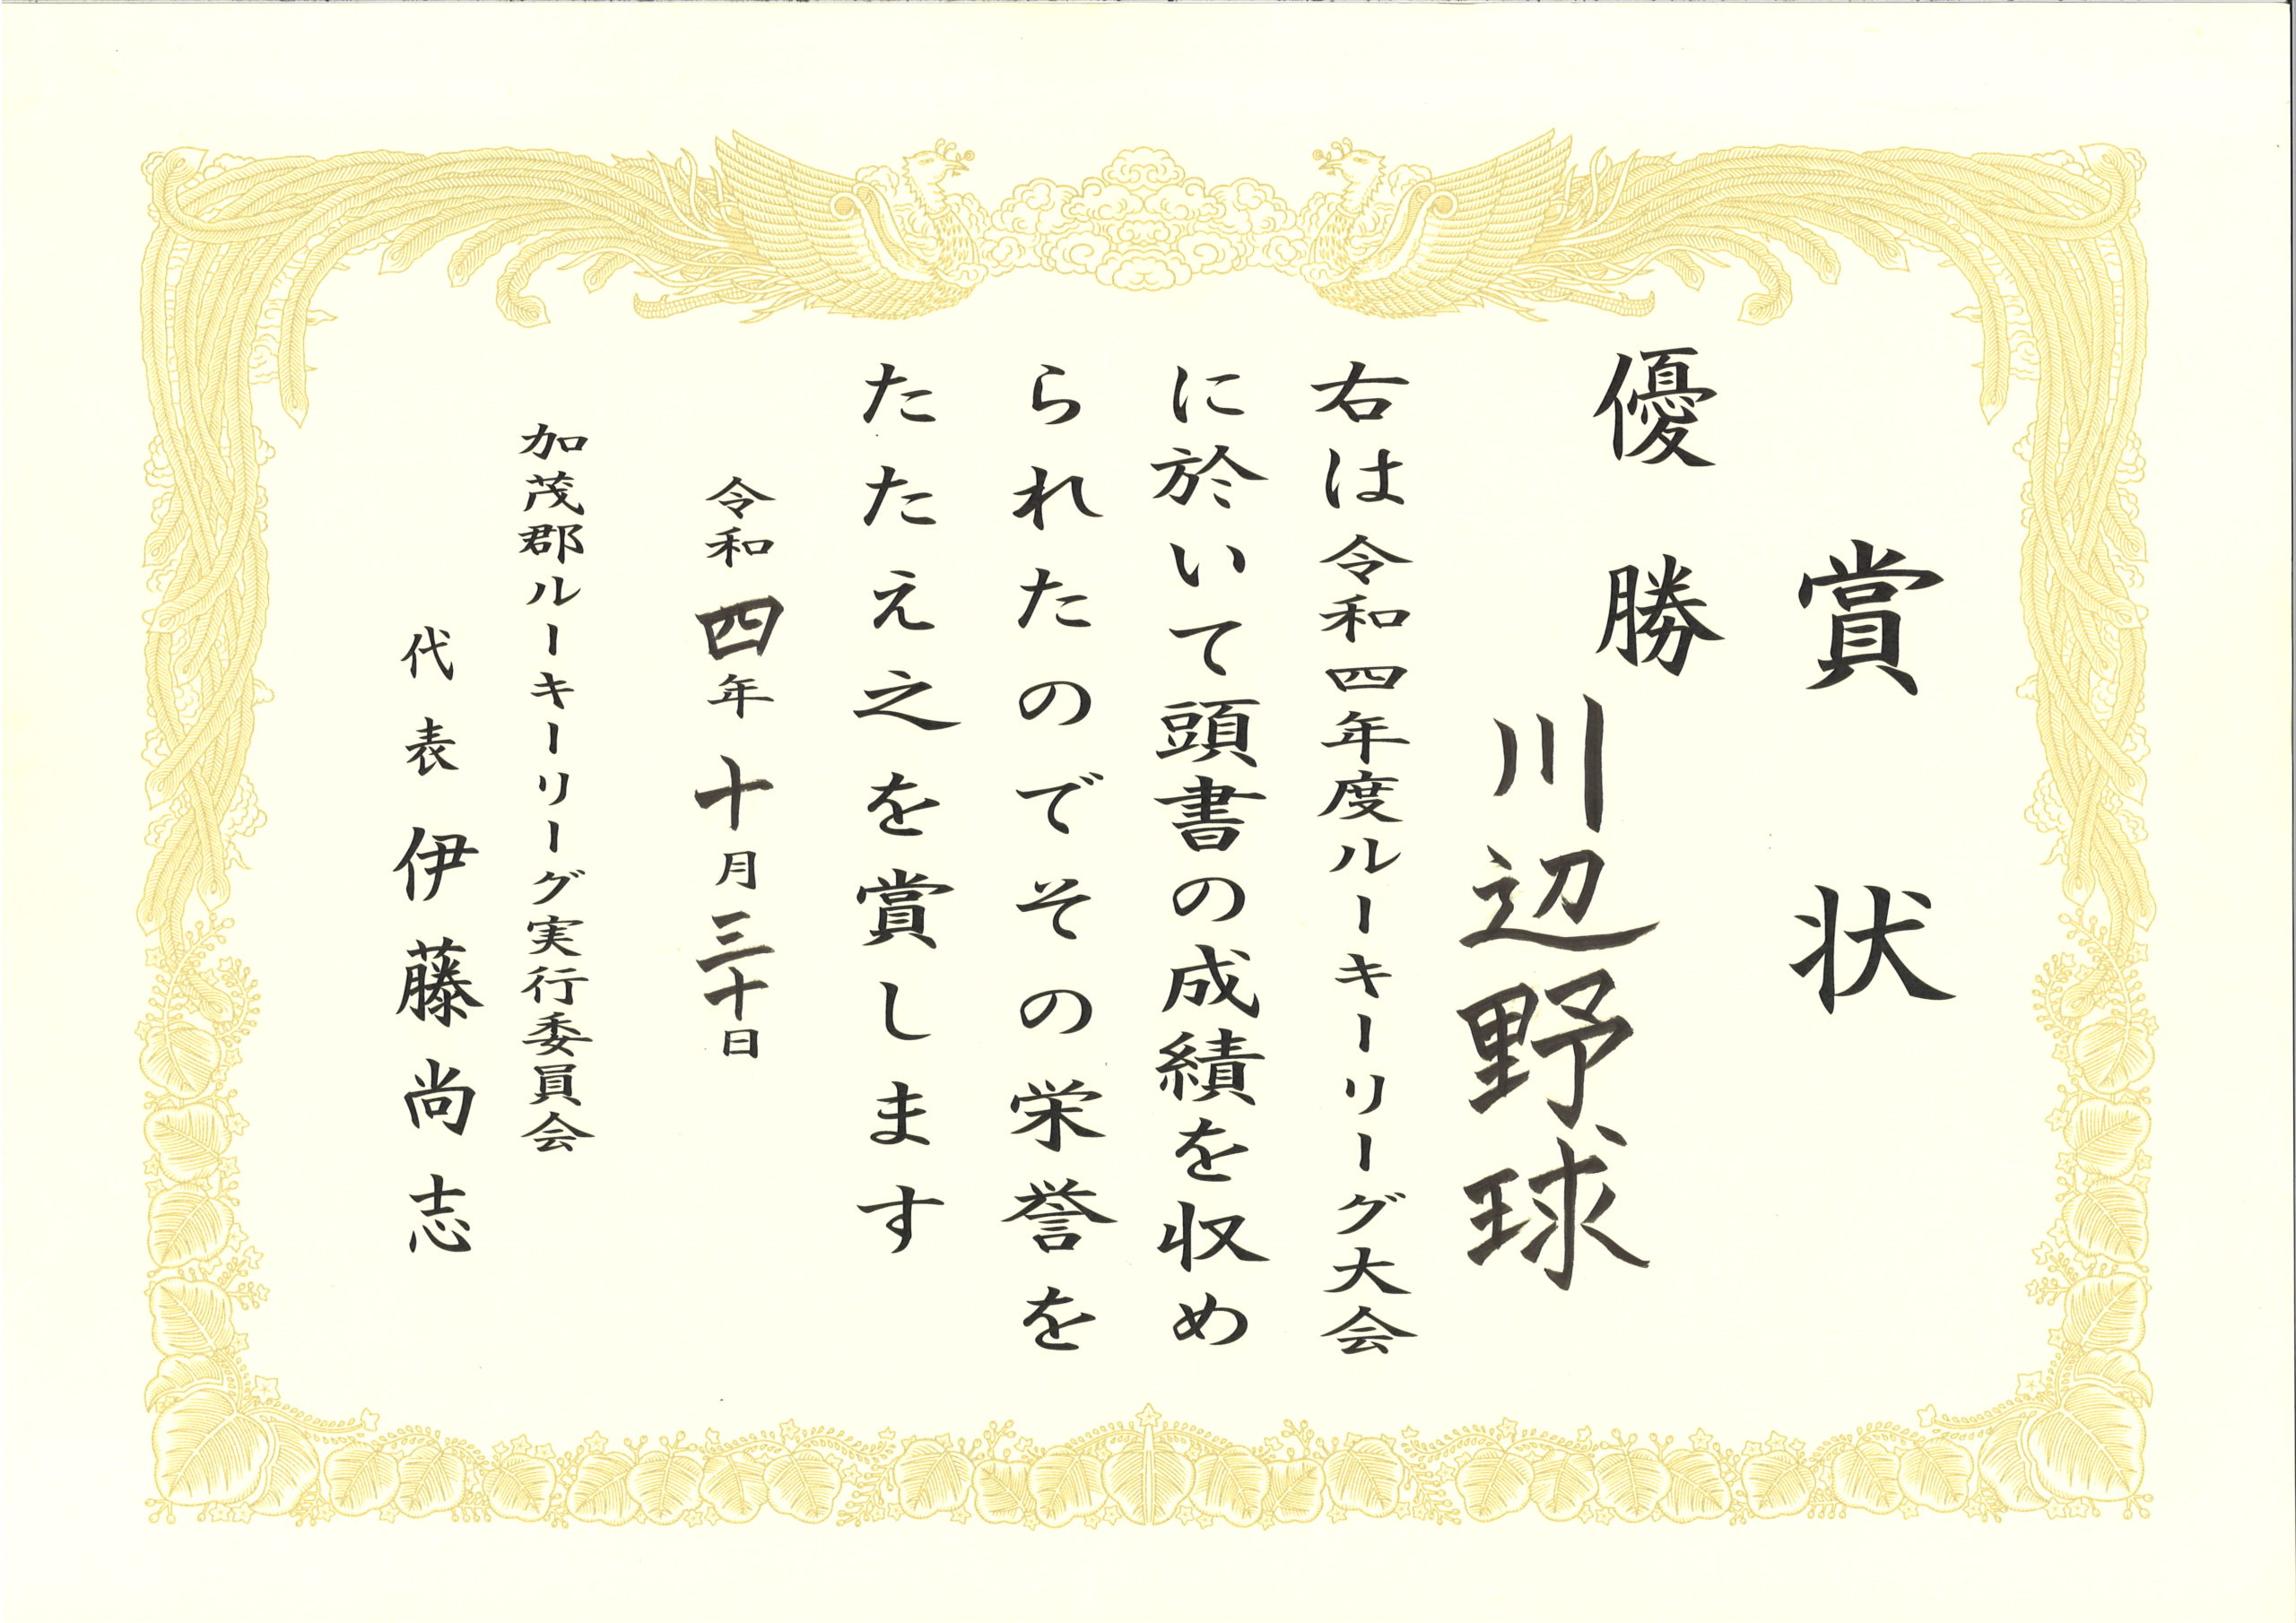 賞状
優勝
川辺野球
右は令和四年度ルーキーリーグ大会
に於いて頭書の成績を収め
られたのでその栄誉を
たたえ之を賞します
令和四年十月三十日
加茂郡ルーキーリーグ実行委員会
代表 伊藤尚志